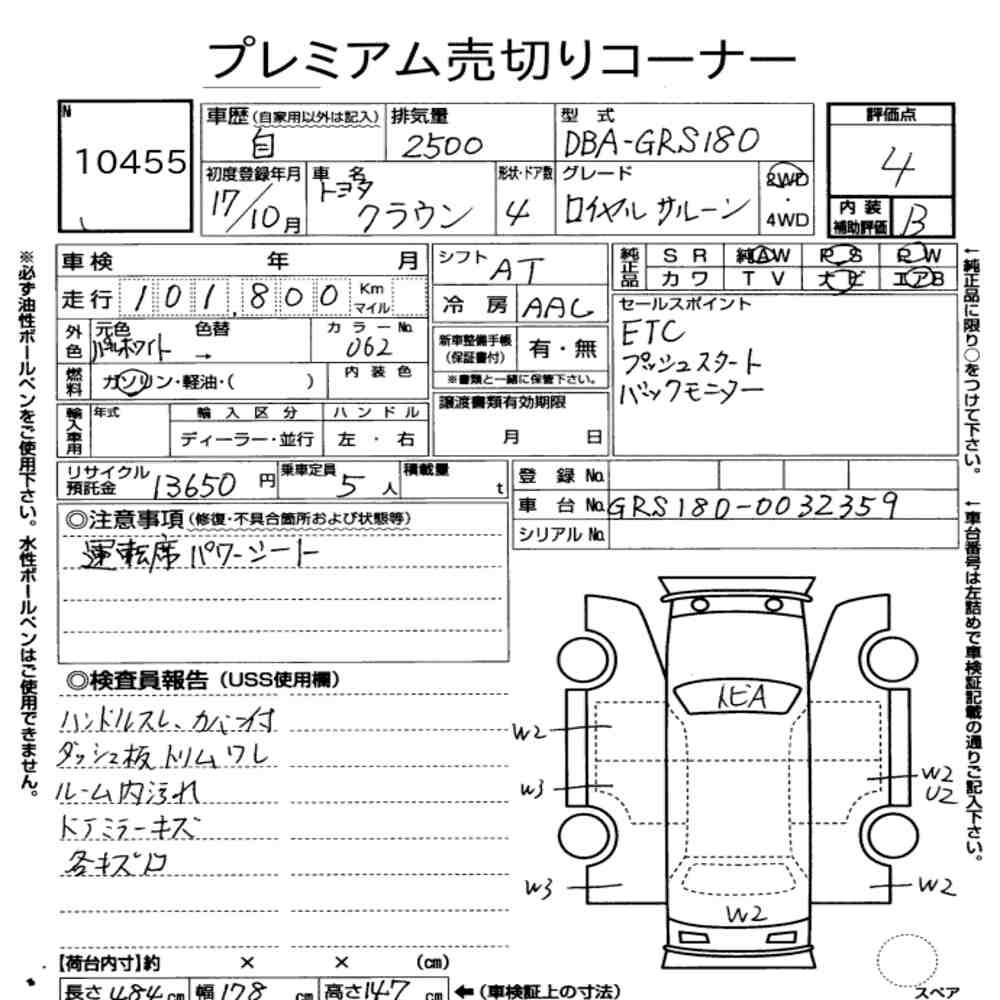 プレミアム売切りコーナー
N
10455
車歴(自家用以外は記入)
自
排気量
2500
型式
DBA-GRS180
評価点
4
初度登録年月
17/10月
車名
トヨタ
クラウン
形状・ドア数
4
グレード
ロイヤル サルーン
2WD
・
4WD
内装
補助評価
B
車検 年 月
走行 101,800 Km
マイル
外色
元色 色替
パールホワイト →
カラーNo.
062
燃料
ガソリン・軽油・( )
内装色
輸入車用
年式
輸入区分
ディーラー・並行
ハンドル
左・右
シフト
AT
冷房 AAC
新車整備手帳
(保証書付)
有・無
※書類と一緒に保管下さい。
譲渡書類有効期限
月 日
純正品
SR 純AW PS PW
カワ TV ナビ エアB
セールスポイント
ETC
プッシュスタート
バックモニター
リサイクル
預託金
13650円
乗車定員
5人
積載量
t
登録No.
車台No. GRS180-0032359
シリアルNo.
◎注意事項(修復・不具合箇所および状態等)
運転席パワーシート
◎検査員報告(USS使用欄)
ハンドルスレ、カバー付
ダッシュ板トリムワレ
ルーム内汚れ
ドアミラーキズ
各キズ凹
トビA
W2
W3
W2
U2
W3
W2
W2
【荷台内寸】約 × × (cm)
長さ484cm 幅178cm 高さ147cm ←(車検証上の寸法)
スペア
※必ず油性ボールペンをご使用下さい。水性ボールペンはご使用できません。
←純正品に限り○をつけて下さい。
←車台番号は左詰めで車検証記載の通りご記入下さい。